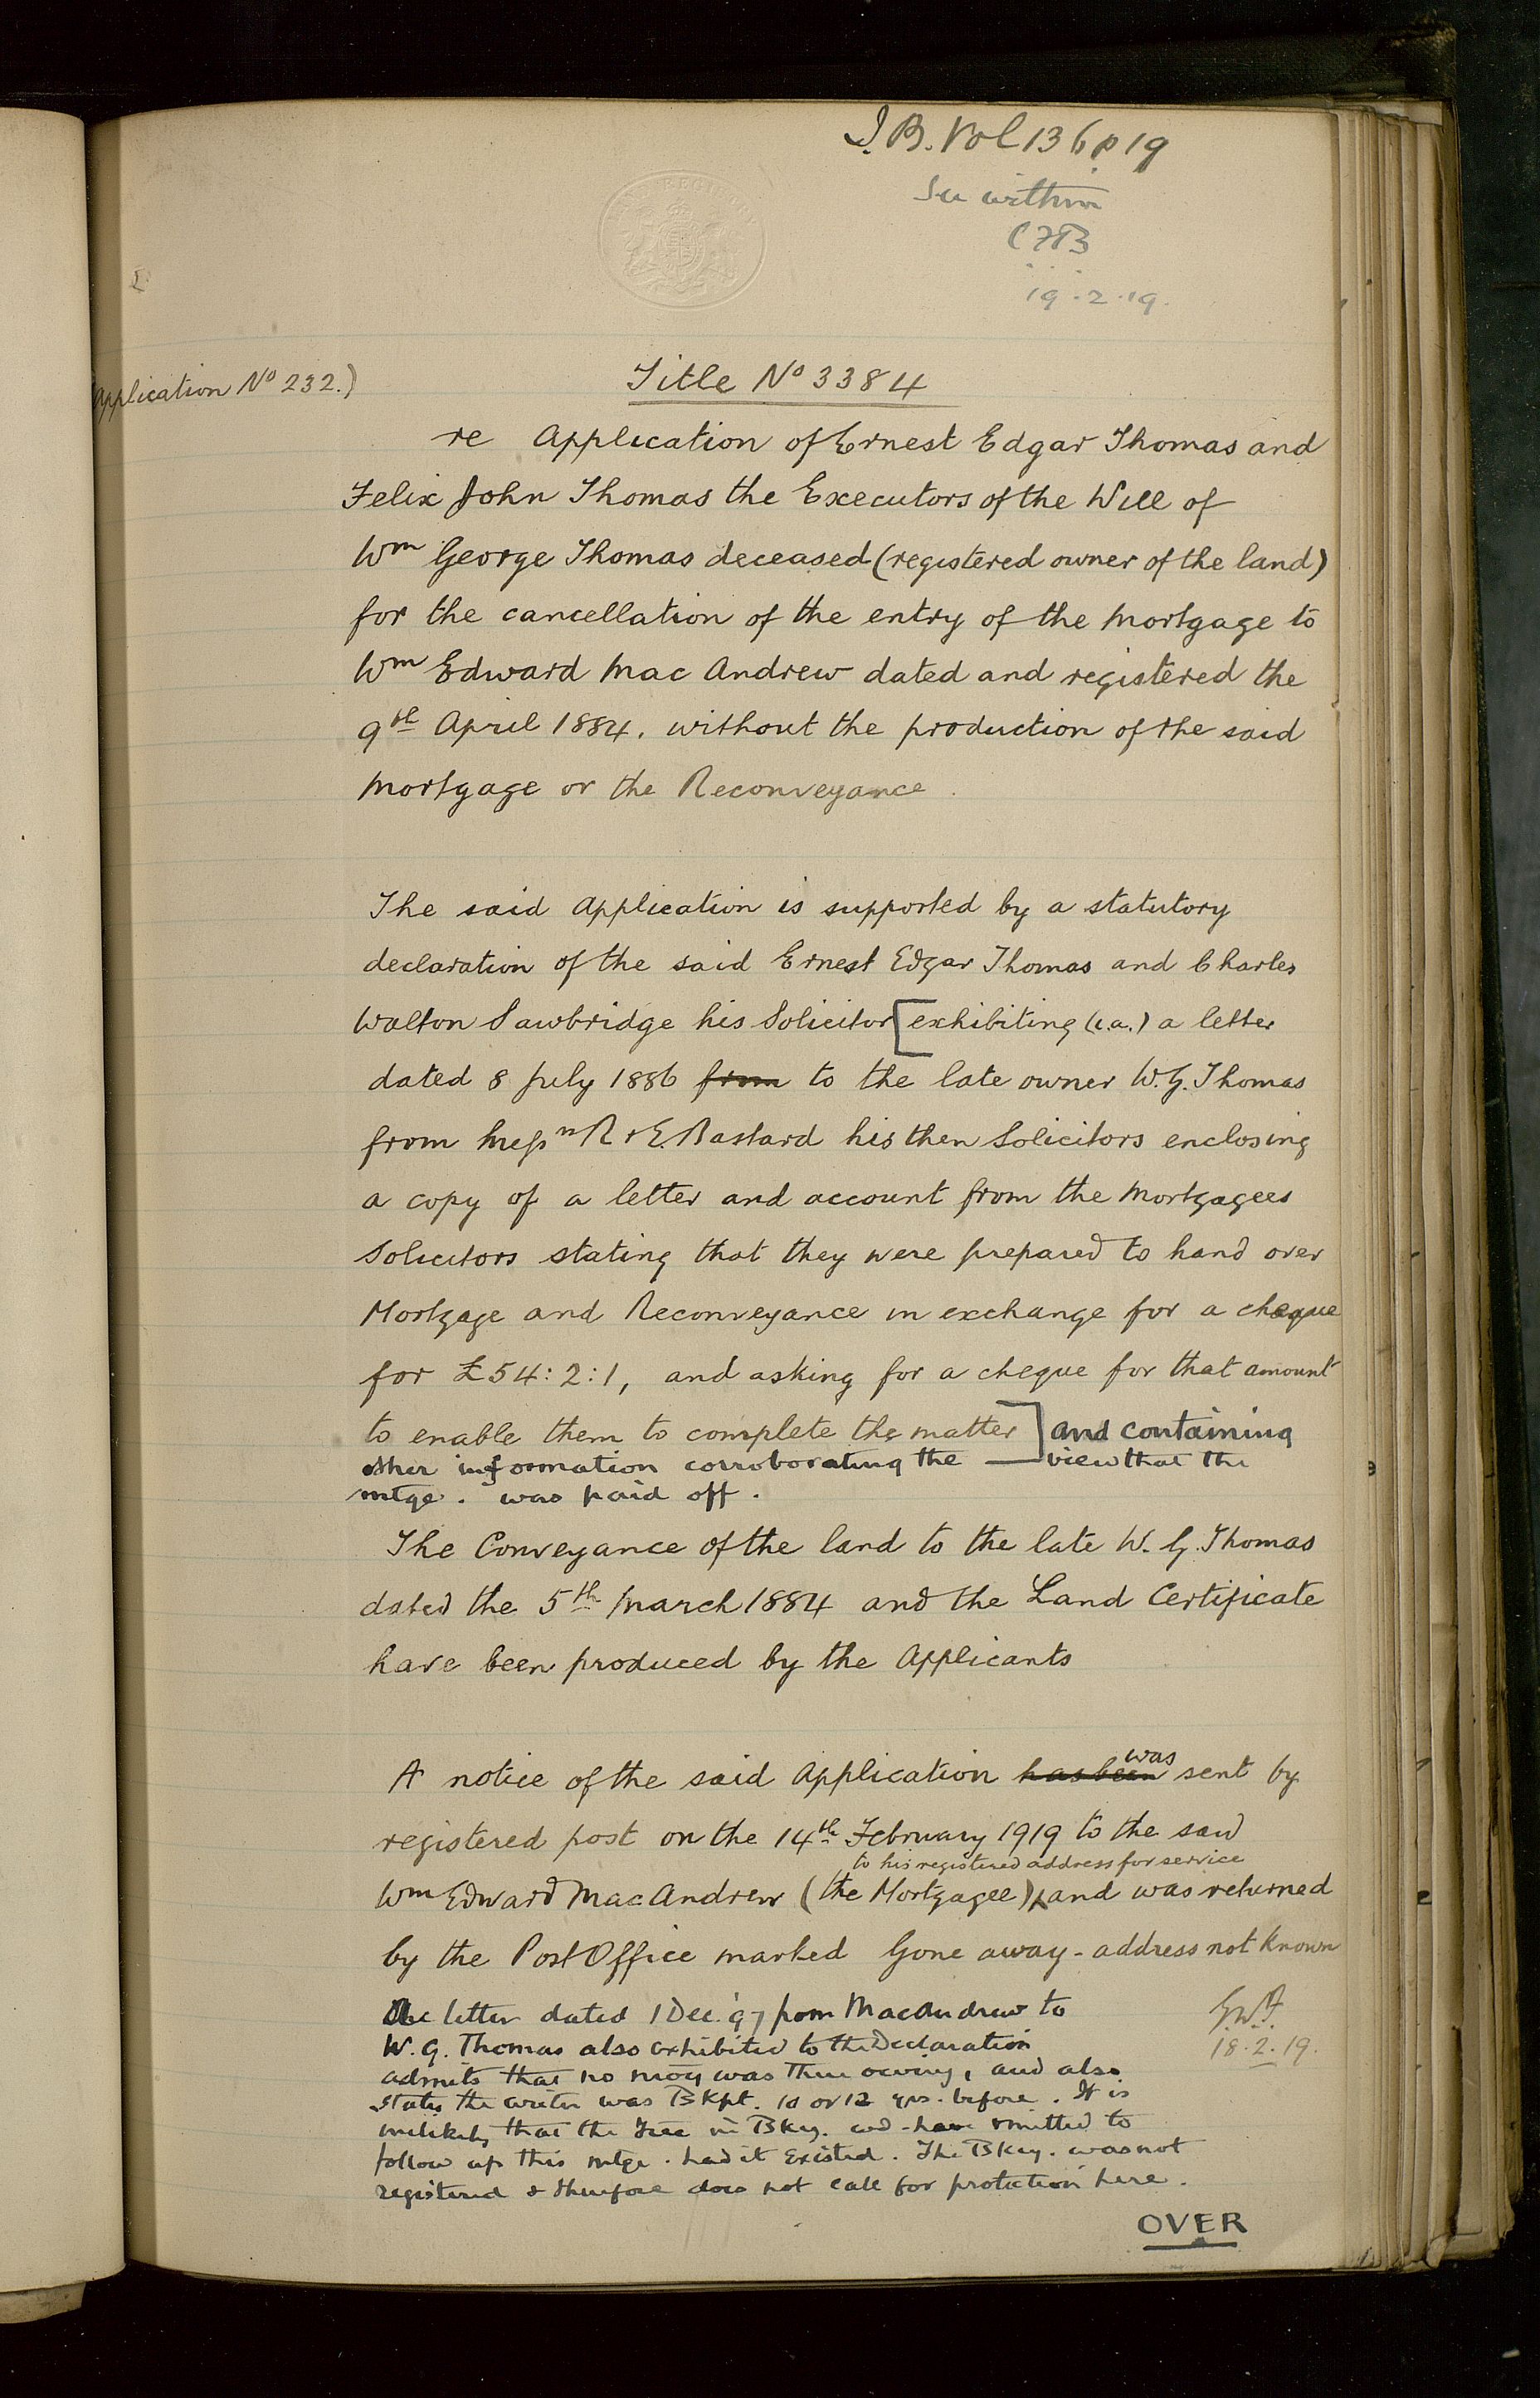 I.B. Vol 136 p 19
See within
CFB
19.2.19.
Application No 232.)
Title No 3384
re Application of Ernest Edgar Thomas and
Felix John Thomas the Executors of the Will of
Wm George Thomas deceased (registered owner of the land)
for the cancellation of the entry of the Mortgage to
Wm Edward Mac Andrew dated and registered the
9th April 1884, without the production of the said
Mortgage or the Reconveyance.
The said Application is supported by a statutory
declaration of the said Ernest Edgar Thomas and Charles
Walton Sawbridge his Solicitor [exhibiting (i.a.) a letter
dated 8 July 1886 from to the late owner W. G. Thomas
from Messrs R & E. Bastard his then Solicitors enclosing
a copy of a letter and account from the Mortgagees
Solicitors stating that they were prepared to hand over
Mortgage and Reconveyance in exchange for a cheque
for £54:2:1, and asking for a cheque for that amount
to enable them to complete the matter] and containing
other information corroborating the — view that the
mtge. was paid off.
The Conveyance of the land to the late W. G. Thomas
dated the 5th March 1884 and the Land Certificate
have been produced by the Applicants
A notice of the said Application has been was sent by
registered post on the 14th February 1919 to the said
to his registered address for service
Wm Edward Mac Andrew (the Mortgagee) and was returned
by the Post Office marked Gone away - address not known
letter dated 1 Dec. '97 from MacAndrew to
W. G. Thomas also exhibited to the Declaration
admits that no moy was then owing, and also
states the writer was Bkpt. 10 or 12 yrs. before. It is
unlikely that the Tree in Bkcy. wd have omitted to
follow up this mtge. had it existed. The Bkcy. was not
registered & therefore does not call for protection here.
18.2.19.
OVER